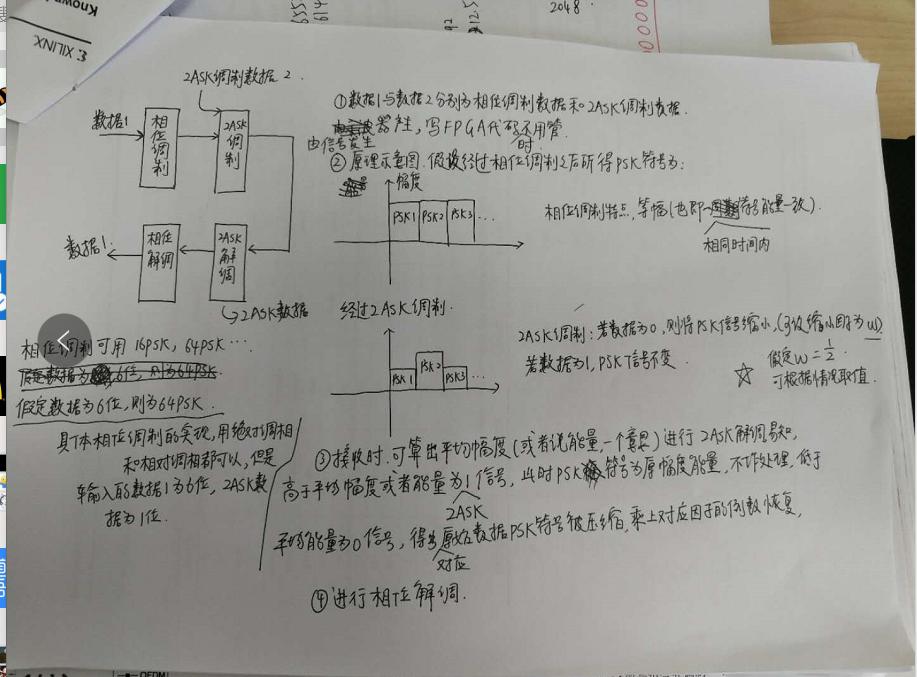 Known
XILINX
2048.
2ASK调制数据2.
数据1
相位调制
2ASK调制
数据1.
相位解调
2ASK解调
2ASK数据
①数据1与数据2分别为相位调制数据和2ASK调制数据.
由信号发生器产生,写FPGA代码时不用管.
②原理示意图.假设经过相位调制之后所得PSK符号为:
幅度
PSK1 PSK2 PSK3 ...
相位调制特点,等幅(也即相同时间内符号能量一致).
经过2ASK调制.
PSK1 PSK2 PSK3 ...
2ASK调制:若数据为0,则将PSK信号缩小,(可设缩小因子为w)
若数据为1,PSK信号不变
☆ 假定w=1/2.
可根据情况取值.
相位调制可用16PSK,64PSK...
假定数据为6位,则为64PSK.
假定数据为6位,则为64PSK.
具体相位调制的实现,用绝对调相
和相对调相都可以,但是
输入的数据1为6位,2ASK数
据为1位.
③接收时.可算出平均幅度(或者说能量,一个意思)进行2ASK解调易知,
高于平均幅度或者能量为2ASK1信号,此时PSK符号为原幅度能量,不作处理,低于
平均能量为0信号,得出对应原始数据PSK符号被压缩,乘上对应因子的倒数恢复,
④进行相位解调.